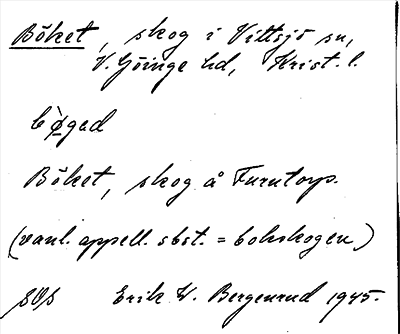 Böket, skog i Vittsjö sn,
V. Göinge hd, Krist. l.
bø̀ged
Böket, skog å Furutorp.
(vanl. appell. sbst. = bokskogen)
SOS Erik W. Bergenrud 1945.